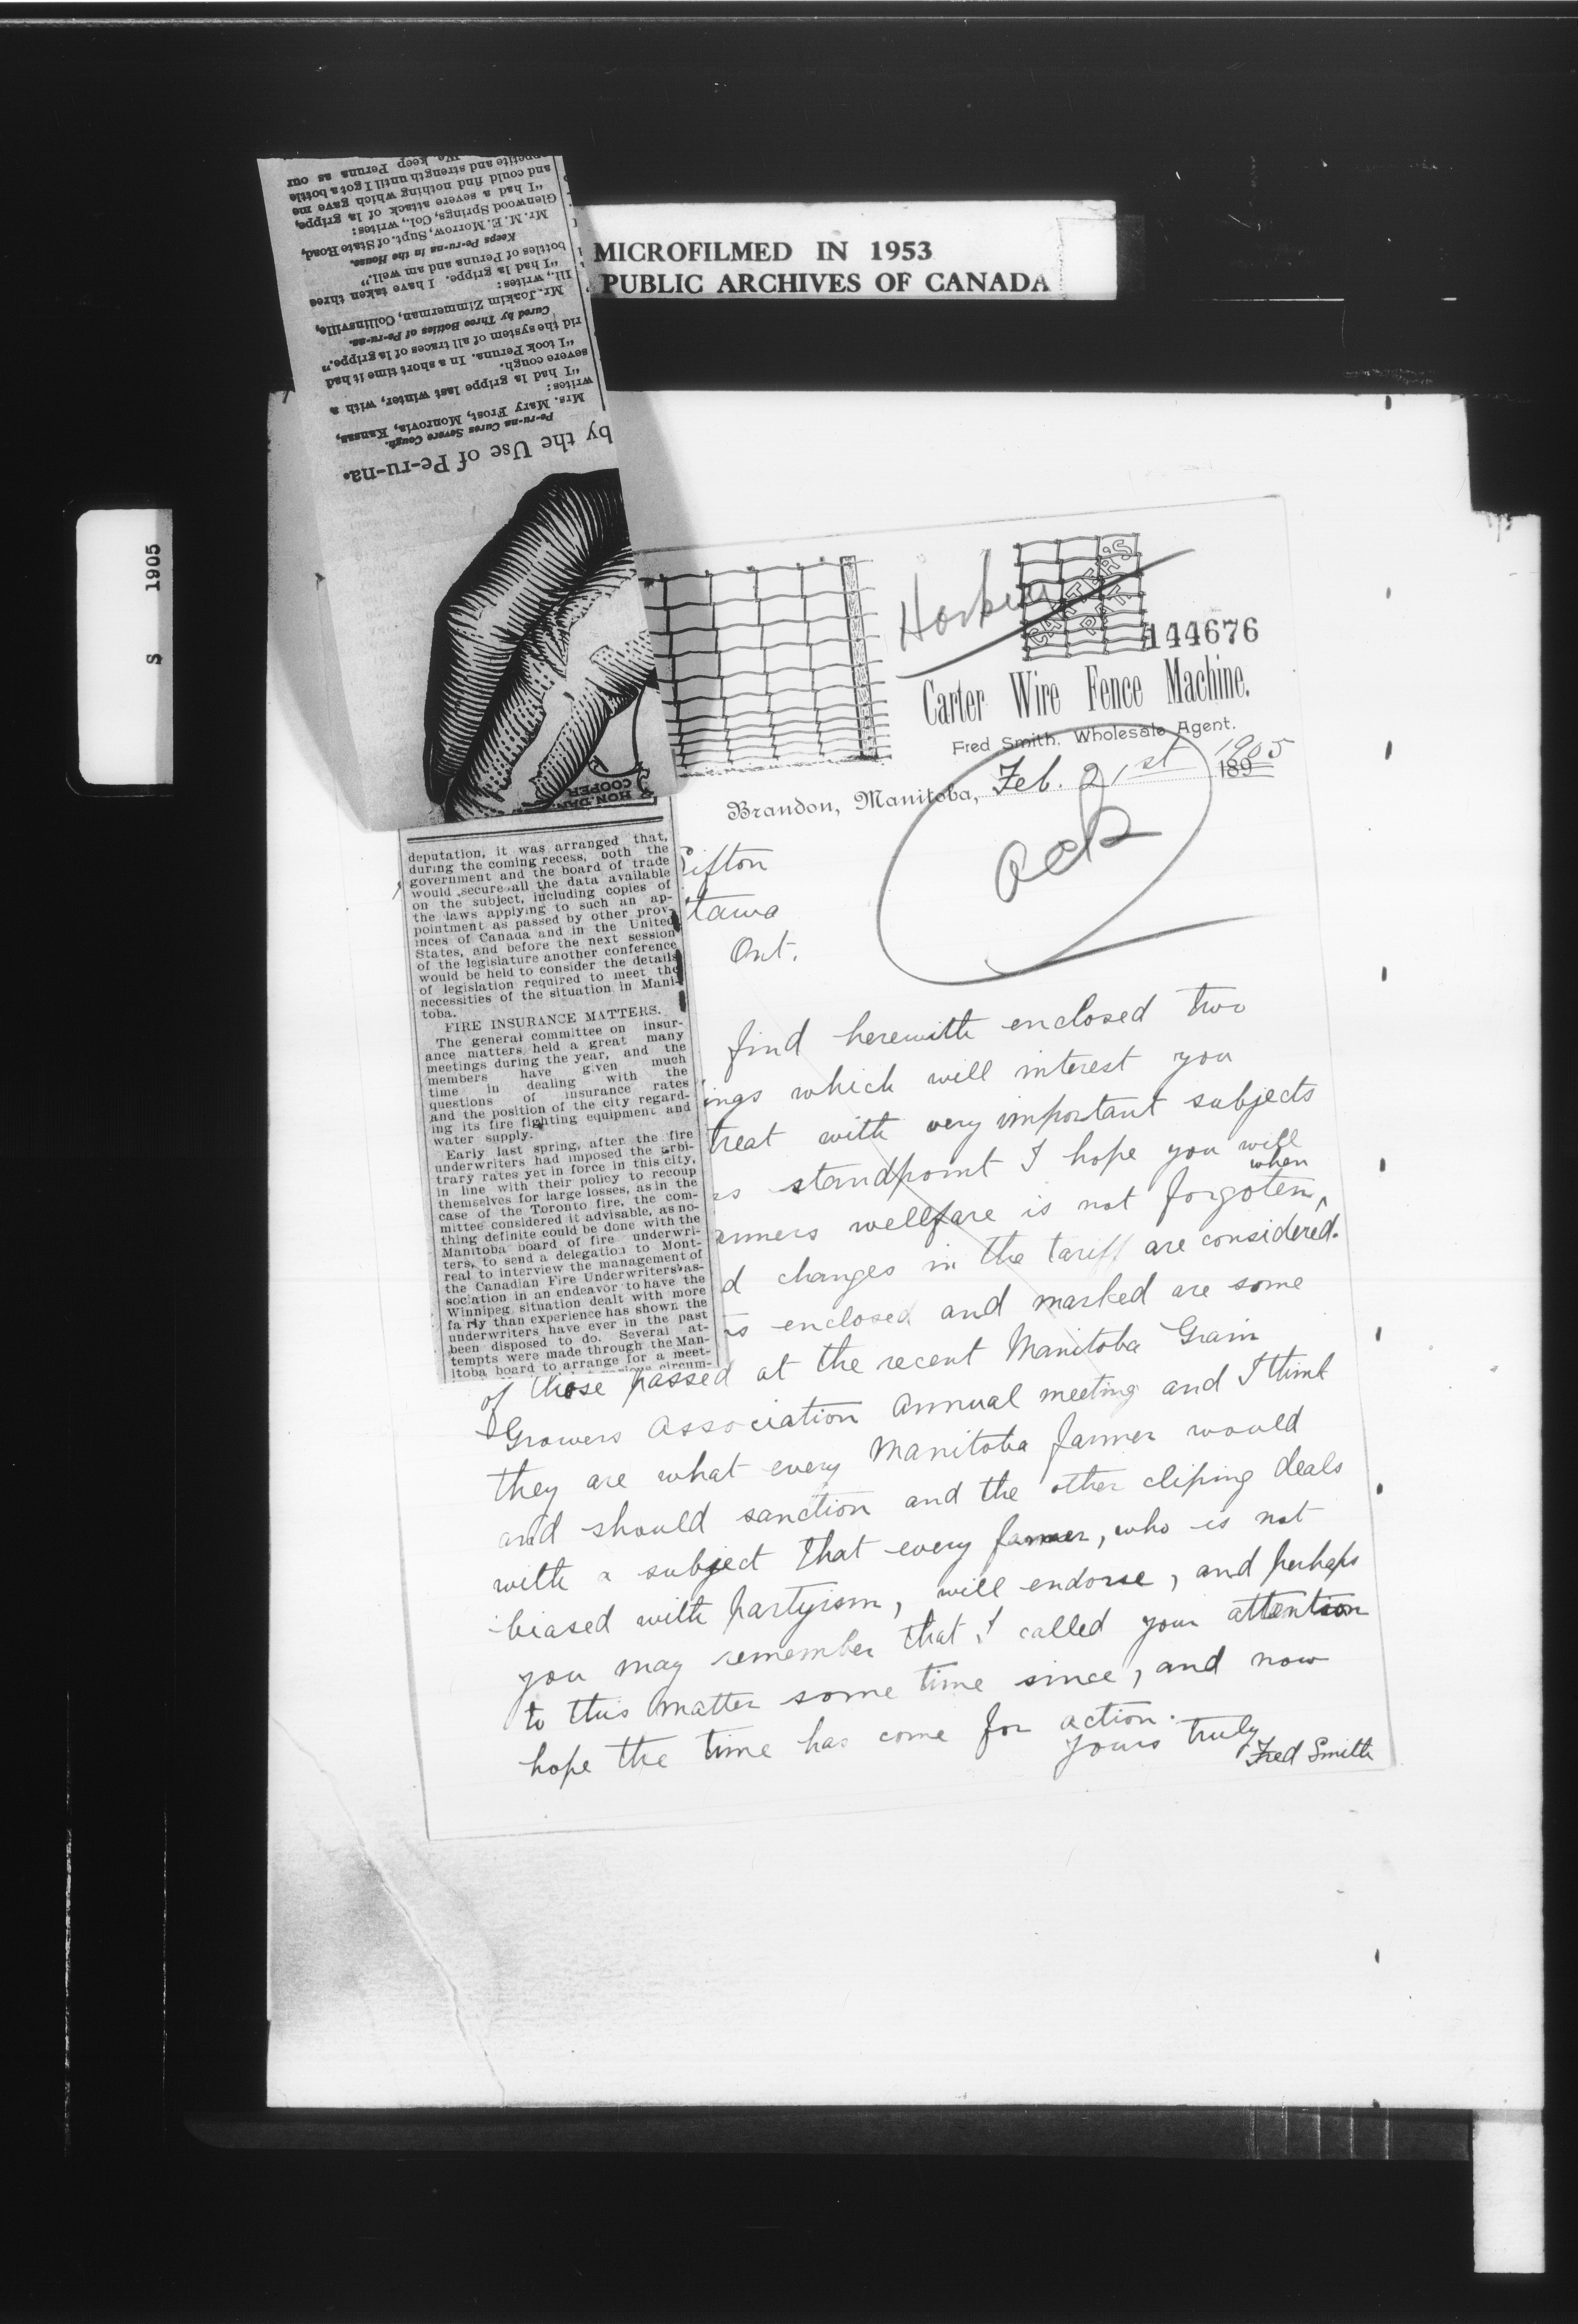 MICROFILMED IN 1953
PUBLIC ARCHIVES OF CANADA
S 1905
We keep Peruna as our
appetite and strength until I got a bottle
and could find nothing which gave me
"I had a severe attack of la grippe,
Glenwood Springs, Col., writes:
Mr. M. E. Morrow, Supt. of State Road,
Keeps Pe-ru-na in the House.
bottles of Peruna and am well."
"I had la grippe. I have taken three
Ill., writes:
Mr. Joakim Zimmerman, Collinsville,
Cured by Three Bottles of Pe-ru-na.
rid the system of all traces of la grippe."
"I took Peruna. In a short time it had
severe cough.
"I had la grippe last winter, with a
writes:
Mrs. Mary Frost, Monrovia, Kansas,
Pe-ru-na Cures Severe Cough.
by the Use of Pe-ru-na.
HON. DAN.
COOPER
CARTER'S
PAT
144676
Carter Wire Fence Machine.
Fred Smith, Wholesale Agent.
Brandon, Manitoba, Feb. 21st 1905
189
ack
Sifton
tawa
Ont.
deputation, it was arranged that,
during the coming recess, both the
government and the board of trade
would secure all the data available
on the subject, including copies of
the laws applying to such an ap-
pointment as passed by other prov-
inces of Canada and in the United
States, and before the next session
of the legislature another conference
would be held to consider the details
of legislation required to meet the
necessities of the situation in Mani-
toba.
FIRE INSURANCE MATTERS.
The general committee on insur-
ance matters held a great many
meetings during the year, and the
members have given much
time in dealing with the
questions of insurance rates
and the position of the city regard-
ing its fire fighting equipment and
water supply.
Early last spring, after the fire
underwriters had imposed the arbi-
trary rates yet in force in this city,
in line with their policy to recoup
themselves for large losses, as in the
case of the Toronto fire, the com-
mittee considered it advisable, as no-
thing definite could be done with the
Manitoba board of fire underwri-
ters, to send a delegation to Mont-
real to interview the management of
the Canadian Fire Underwriters' as-
sociation in an endeavor to have the
Winnipeg situation dealt with more
fairly than experience has shown the
underwriters have ever in the past
been disposed to do. Several at-
tempts were made through the Man-
itoba board to arrange for a meet-
circum-
find herewith enclosed two
ings which will interest you
treat with very important subjects
rs standpoint I hope you will
when
armers wellfare is not forgoten
d changes in the tariff are considered.
s enclosed and marked are some
of those passed at the recent Manitoba Grain
Growers Association annual meeting and I think
they are what every Manitoba farmer would
and should sanction and the other cliping deals
with a subject that every farmer, who is not
biased with partyism, will endorse, and perhaps
you may remember that I called your attention
to this matter some time since, and now
hope the time has come for action.
yours truly
Fred Smith